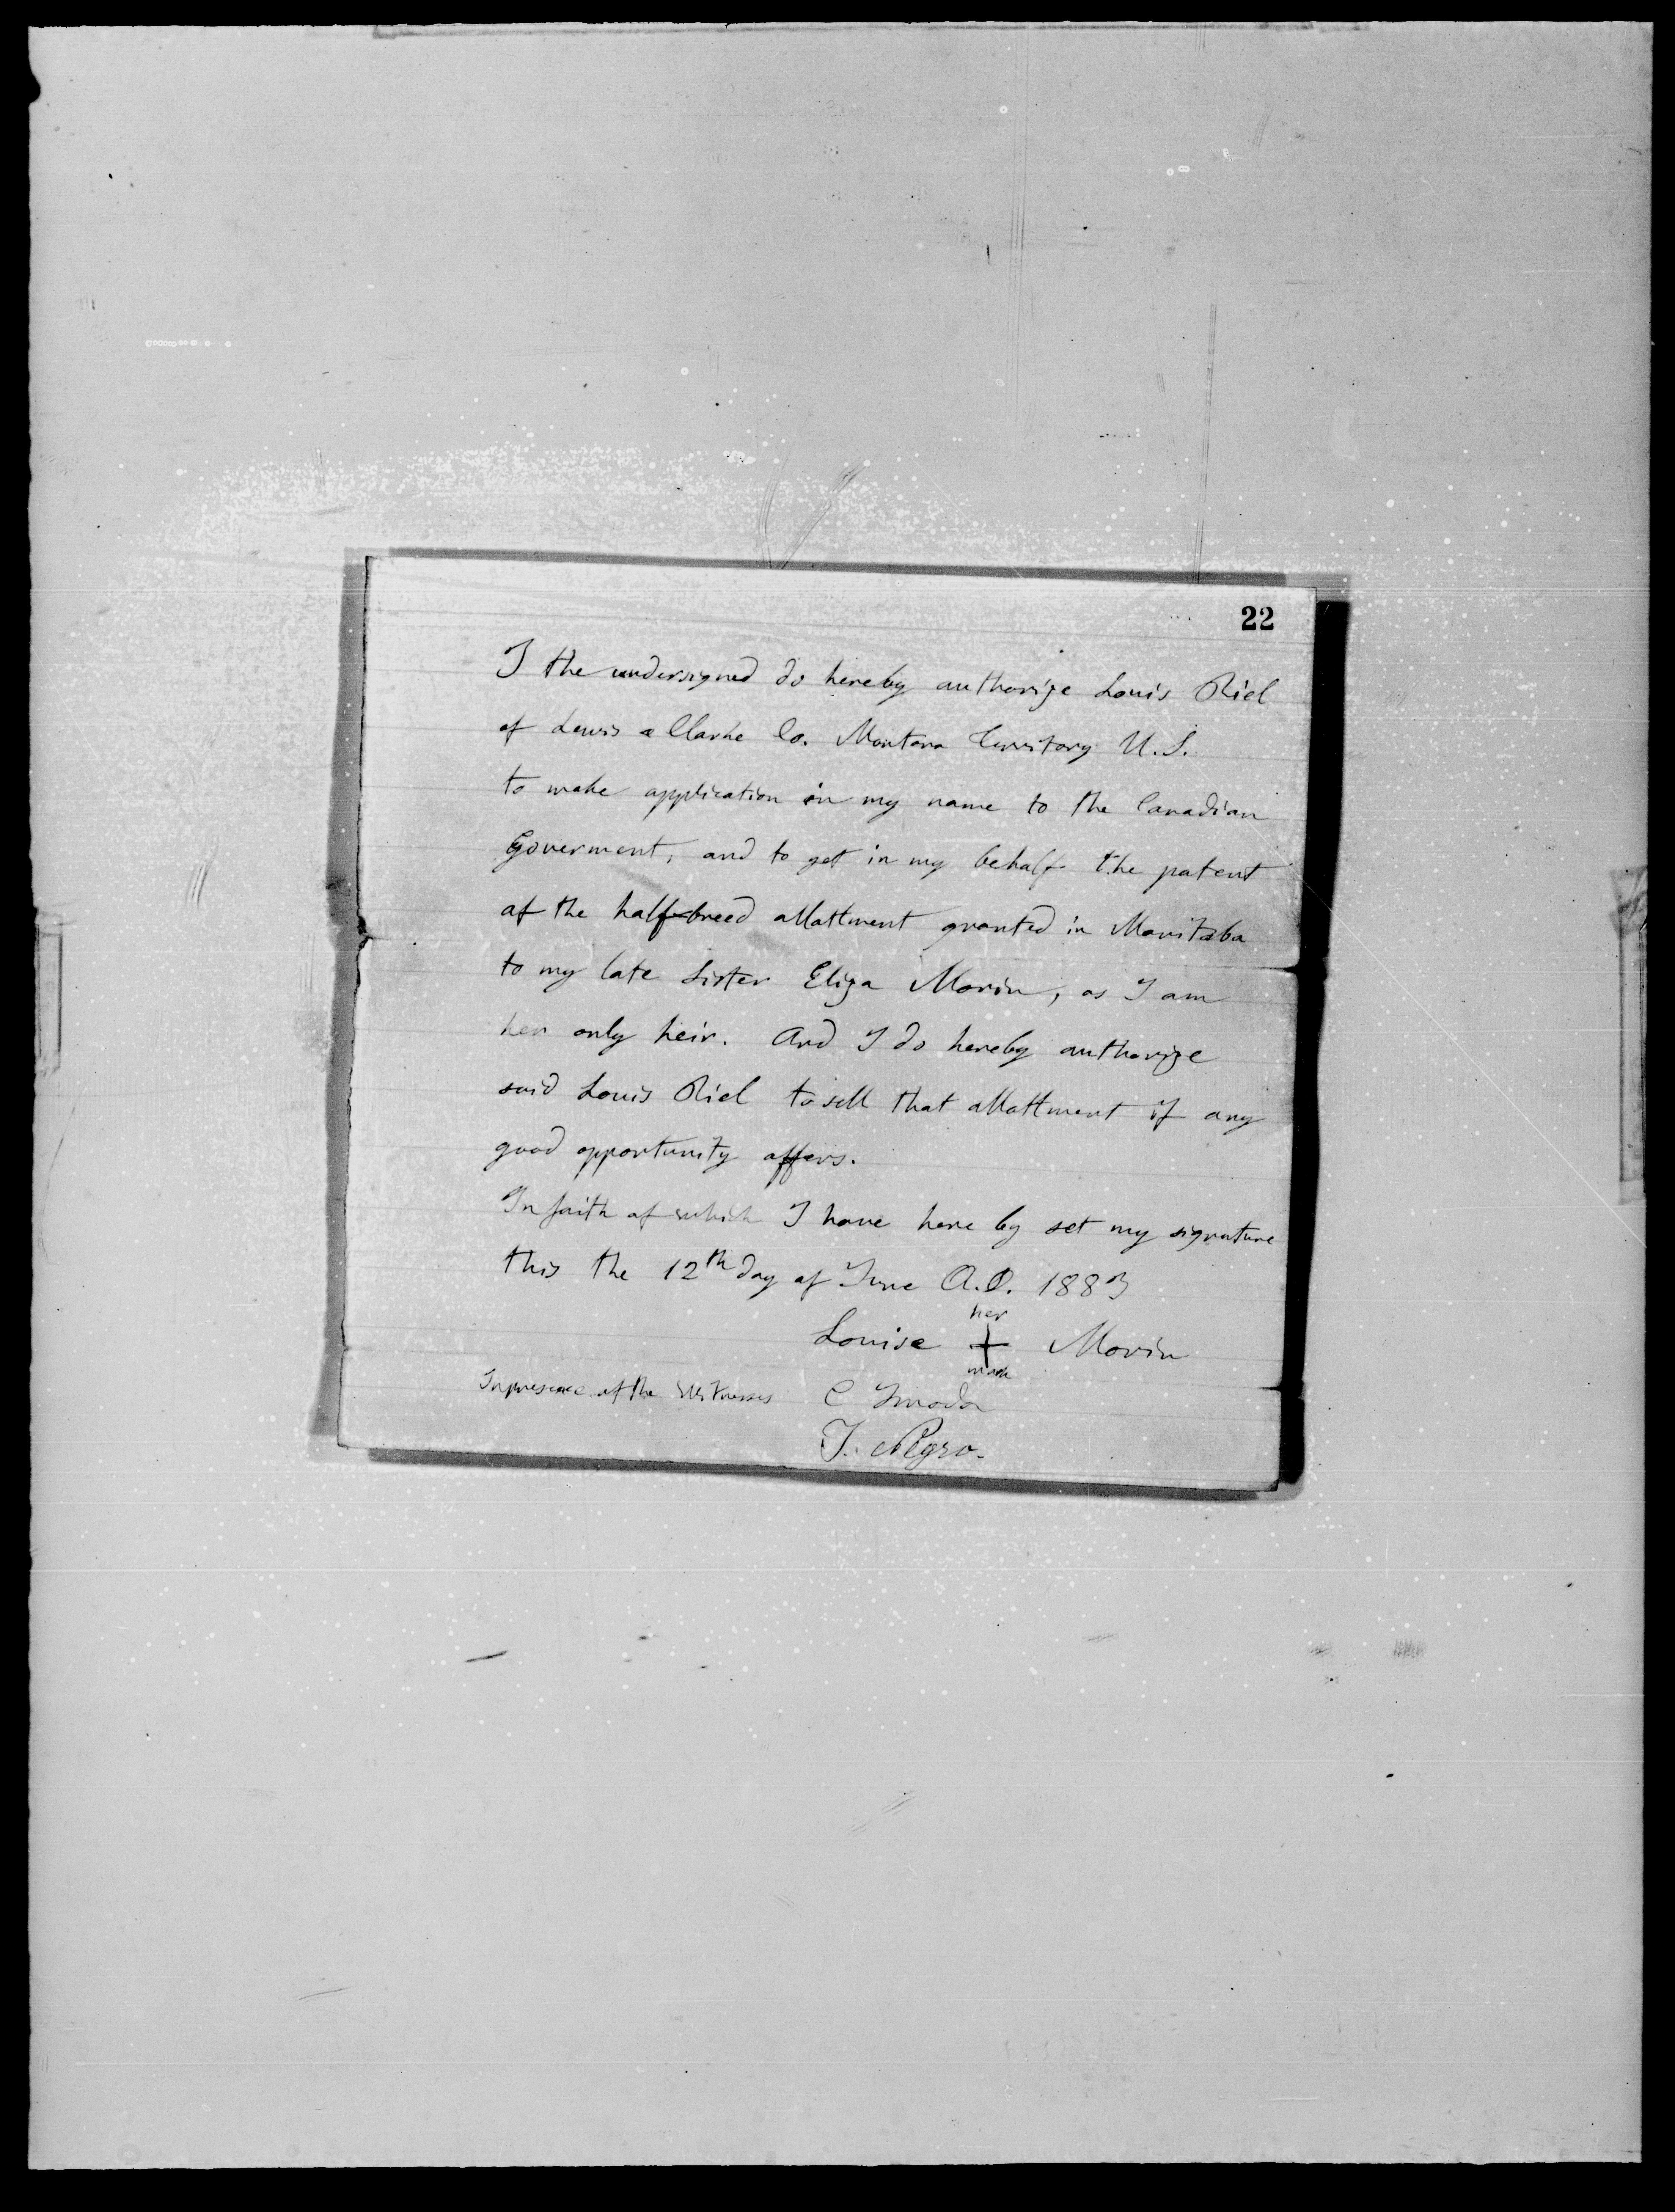 22
I the undersigned do hereby authorize Louis Riel
of Lewis & Clarke Co. Montana Territory U.S.
to make application in my name to the Canadian
Goverment, and to get in my behalf the patent
of the half-breed allottment granted in Manitoba
to my late Sister Eliza Morin, as I am
her only heir. And I do hereby authorize
said Louis Riel to sell that allottment if any
good opportunity offers.
In faith of which I have here by set my signature
this the 12th day of June A.D. 1883
her
Louise + Morin
mark
In presence of the Witnesses C Imoda
J. Negro.